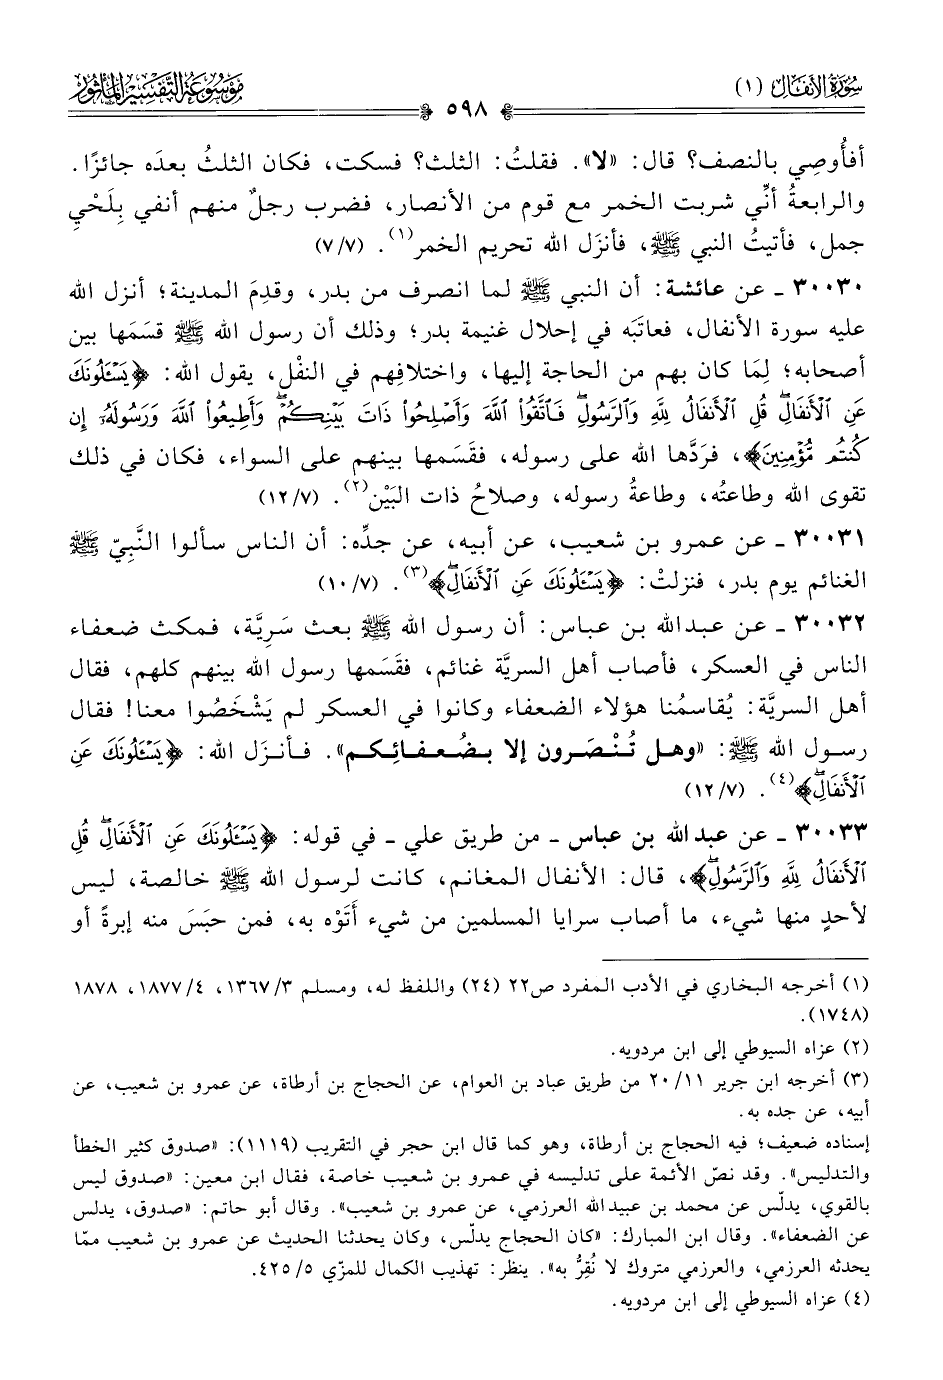 سُورَةُ الأَنْفَال (١)
٥٩٨
مَوْسُوعَةُ التَّفْسِيرِ المَأْثُور
أفأُوصِي بالنصف؟ قال: «لا». فقلتُ: الثلث؟ فسكت، فكان الثلثُ بعدَه جائزًا.
والرابعةُ أنِّي شربت الخمر مع قوم من الأنصار، فضرب رجلٌ منهم أنفي بِلَحْيِ
جمل، فأتيتُ النبي ﷺ، فأنزَل الله تحريم الخمر(١). (٧/٧)
٣٠٠٣٠ ـ عن عائشة: أن النبي ﷺ لما انصرف من بدر، وقدِمَ المدينة؛ أنزل الله
عليه سورة الأنفال، فعاتبَه في إحلال غنيمة بدر؛ وذلك أن رسول الله ﷺ قسَمَها بين
أصحابه؛ لِمَا كان بهم من الحاجة إليها، واختلافِهم في النفْل، يقول الله: ﴿يَسْـَٔلُونَكَ
عَنِ ٱلْأَنفَالِۖ قُلِ ٱلْأَنفَالُ لِلَّهِ وَٱلرَّسُولِۖ فَٱتَّقُوا۟ ٱللَّهَ وَأَصْلِحُوا۟ ذَاتَ بَيْنِكُمْۖ وَأَطِيعُوا۟ ٱللَّهَ وَرَسُولَهُۥٓ إِن
كُنتُم مُّؤْمِنِينَ﴾، فرَدَّها الله على رسوله، فقَسَمها بينهم على السواء، فكان في ذلك
تقوى الله وطاعتُه، وطاعةُ رسوله، وصلاحُ ذات البَيْن(٢). (١٢/٧)
٣٠٠٣١ ـ عن عمرو بن شعيب، عن أبيه، عن جدِّه: أن الناس سألوا النَّبِيّ ﷺ
الغنائم يوم بدر، فنزلتْ: ﴿يَسْـَٔلُونَكَ عَنِ ٱلْأَنفَالِۖ﴾(٣). (١٠/٧)
٣٠٠٣٢ ـ عن عبدالله بن عباس: أن رسول الله ﷺ بعث سَرِيَّة، فمكث ضعفاء
الناس في العسكر، فأصاب أهل السريَّة غنائم، فقَسَمها رسول الله بينهم كلهم، فقال
أهل السريَّة: يُقاسمُنا هؤلاء الضعفاء وكانوا في العسكر لم يَشْخَصُوا معنا! فقال
رسول الله ﷺ: «وهل تُنْصَرون إلا بضُعفائِكم». فأنزَل الله: ﴿يَسْـَٔلُونَكَ عَنِ
ٱلْأَنفَالِۖ﴾(٤). (١٢/٧)
٣٠٠٣٣ ـ عن عبدالله بن عباس ـ من طريق علي ـ في قوله: ﴿يَسْـَٔلُونَكَ عَنِ ٱلْأَنفَالِۖ قُلِ
ٱلْأَنفَالُ لِلَّهِ وَٱلرَّسُولِۖ﴾، قال: الأنفال المغانم، كانت لرسول الله ﷺ خالصة، ليس
لأحدٍ منها شيء، ما أصاب سرايا المسلمين من شيء أَتَوْه به، فمن حبَسَ منه إبرةً أو
(١) أخرجه البخاري في الأدب المفرد ص٢٢ (٢٤) واللفظ له، ومسلم ١٣٦٧/٣، ١٨٧٧/٤، ١٨٧٨
(١٧٤٨).
(٢) عزاه السيوطي إلى ابن مردويه.
(٣) أخرجه ابن جرير ٢٠/١١ من طريق عباد بن العوام، عن الحجاج بن أرطاة، عن عمرو بن شعيب، عن
أبيه، عن جده به.
إسناده ضعيف؛ فيه الحجاج بن أرطاة، وهو كما قال ابن حجر في التقريب (١١١٩): «صدوق كثير الخطأ
والتدليس». وقد نصّ الأئمة على تدليسه في عمرو بن شعيب خاصة، فقال ابن معين: «صدوق ليس
بالقوي، يدلّس عن محمد بن عبيدالله العرزمي، عن عمرو بن شعيب». وقال أبو حاتم: «صدوق، يدلس
عن الضعفاء». وقال ابن المبارك: «كان الحجاج يدلّس، وكان يحدثنا الحديث عن عمرو بن شعيب ممّا
يحدثه العرزمي، والعرزمي متروك لا نُقِرُّ به». ينظر: تهذيب الكمال للمزّي ٤٢٥/٥.
(٤) عزاه السيوطي إلى ابن مردويه.